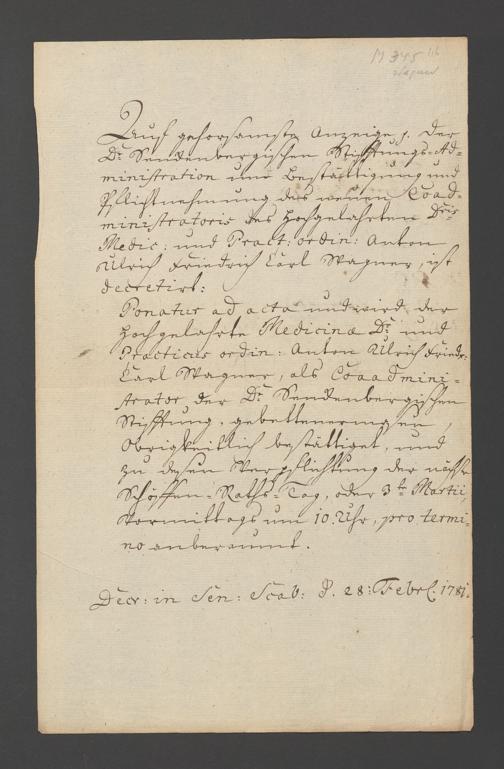 M 345
Wagner
Auf gehorsamste Anzeige p. der
Dr. Senckenbergischen Stifftungs-Ad-
ministration und Bestättigung und
Pflichtnehmung des neuen Coad-
ministratoris des Hochgelahrten Dris
Medic: und Pract: ordin: Anton
Ulrich Friedrich Carl Wagner, ist
decretirt:
Ponatur ad acta und wird der
Hochgelahrte Medicinæ Dr. und
Practicus ordin: Anton Ulrich Friedr:
Carl Wagner, als Coaadmini-
strator der Dr. Senckenbergischen
Stifftung, gebettenermasen,
Obrigkeitlich bestättiget, und
zu dessen Verpflichtung der nächste
Schöffen-Raths-Tag, oder 3te Martii,
Vormittags um 10. Uhr, pro termi-
no anberaumt.
Decr: in Sen: Scab: d. 28: Febr. 1781.